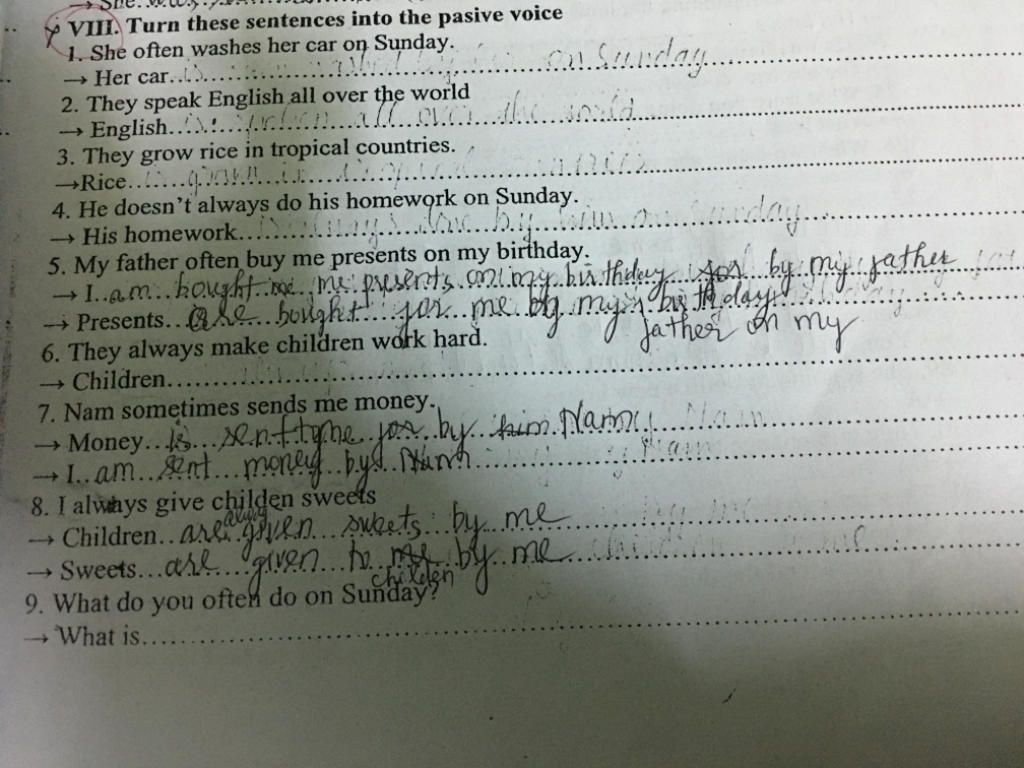 → She.
VIII. Turn these sentences into the pasive voice
1. She often washes her car on Sunday.
→ Her car is on Sunday
2. They speak English all over the world
→ English is spoken all over the world
3. They grow rice in tropical countries.
→Rice is grown in tropical
4. He doesn't always do his homework on Sunday.
→ His homework always done by him on Sunday
5. My father often buy me presents on my birthday.
→ I am bought me presents on my birthday by my father
→ Presents are bought for me by my birthday
father on my
6. They always make children work hard.
→ Children
7. Nam sometimes sends me money.
→ Money is sent for by him Nam
→ I am sent money by Nam
8. I always give childen sweets
→ Children are always given sweets by me
→ Sweets are given to me by me
childen
9. What do you often do on Sunday?
→ What is